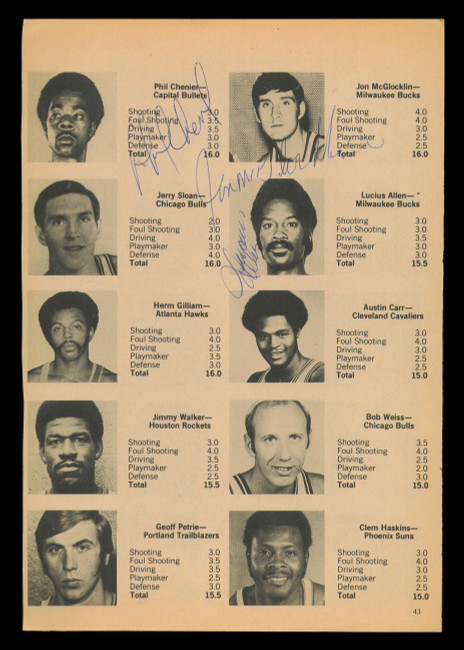 Phil Chenier—
Capital Bullets
Shooting 3.0
Foul Shooting 3.5
Driving 3.5
Playmaker 3.0
Defense 3.0
Total 16.0
Phil Chenier
Jon McGlocklin—
Milwaukee Bucks
Shooting 4.0
Foul Shooting 4.0
Driving 3.0
Playmaker 2.5
Defense 2.5
Total 16.0
Jon McGlocklin
Jerry Sloan—
Chicago Bulls
Shooting 2.0
Foul Shooting 3.0
Driving 4.0
Playmaker 3.0
Defense 4.0
Total 16.0
Lucius Allen—
Milwaukee Bucks
Shooting 3.0
Foul Shooting 3.0
Driving 3.5
Playmaker 3.0
Defense 3.0
Total 15.5
Lucius Allen
Herm Gilliam—
Atlanta Hawks
Shooting 3.0
Foul Shooting 4.0
Driving 2.5
Playmaker 3.5
Defense 3.0
Total 16.0
Austin Carr—
Cleveland Cavaliers
Shooting 3.0
Foul Shooting 4.0
Driving 3.0
Playmaker 2.5
Defense 2.5
Total 15.0
Jimmy Walker—
Houston Rockets
Shooting 3.0
Foul Shooting 4.0
Driving 3.5
Playmaker 2.5
Defense 2.5
Total 15.5
Bob Weiss—
Chicago Bulls
Shooting 3.5
Foul Shooting 4.0
Driving 2.5
Playmaker 2.0
Defense 3.0
Total 15.0
Geoff Petrie—
Portland Trailblazers
Shooting 3.0
Foul Shooting 3.5
Driving 3.5
Playmaker 2.5
Defense 2.5
Total 15.5
Clem Haskins—
Phoenix Suns
Shooting 3.0
Foul Shooting 4.0
Driving 3.0
Playmaker 2.5
Defense 2.5
Total 15.0
43